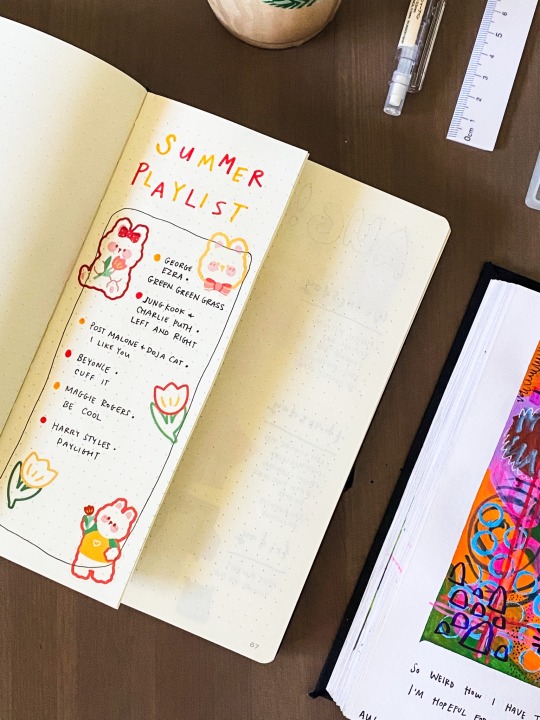 SUMMER
PLAYLIST
GEORGE
EZRA •
GREEN GREEN GRASS
JUNGKOOK +
CHARLIE PUTH •
LEFT AND RIGHT
POST MALONE + DOJA CAT •
I LIKE YOU
BEYONCE •
CUFF IT
MAGGIE ROGERS •
BE COOL
HARRY STYLES •
DAYLIGHT
67
0cm 1 2 3 4 5 6
SO WEIRD HOW I HAVE
I'M HOPEFUL